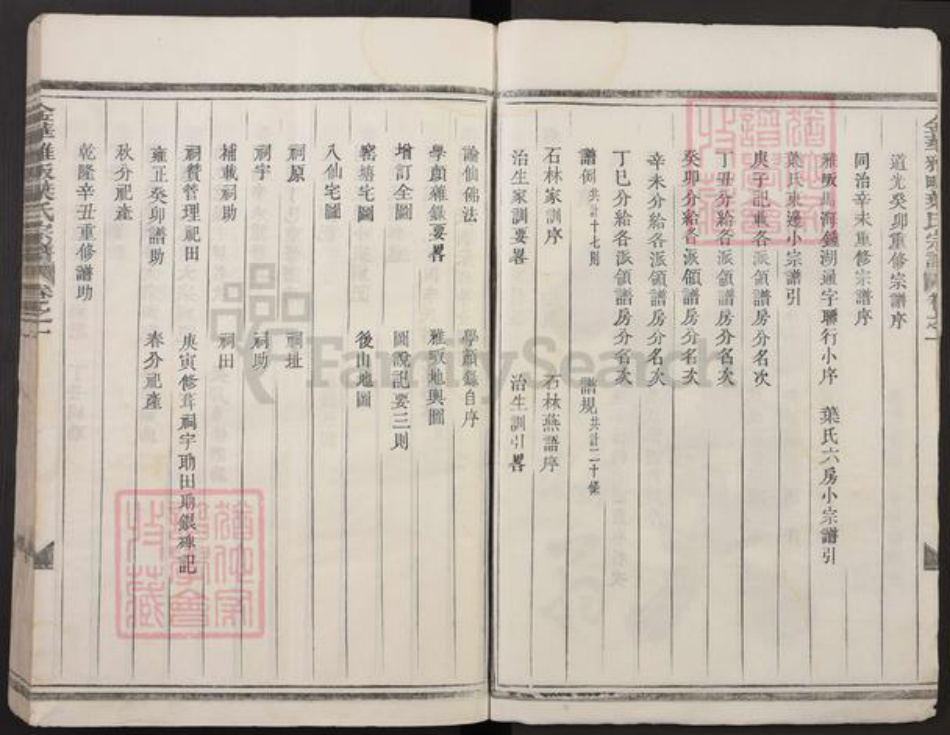 道光癸卯重修宗譜序
同治辛未重修宗譜序
雅畈馬海鍾湖通字聯行小序　葉氏六房小宗譜引
葉氏東邊小宗譜引
庚子記載各派領譜房分名次
丁丑分給各派領譜房分名次
癸卯分給各派領譜房分名次
辛未分給各派領譜房分名次
丁巳分給各派領譜房分名次
譜例共計十七則　譜規共計二十條
石林家訓序　石林燕語序
治生家訓要畧　治生訓引畧
論仙佛法　學顏錄自序
學顏雜錄要畧　雅畈地輿圖
增訂全圖　圖說記要三則
窰塘宅圖　後山地圖
八仙宅圖
祠原　祠址
祠宇　祠助
補載祠助　祠田
祠贊督理祀田　庚寅修葺祠宇助田助銀碑記
雍正癸卯譜助　春分祀產
秋分祀產
乾隆辛丑重修譜助
金華雅畈葉氏宗譜　卷之一
FamilySearch